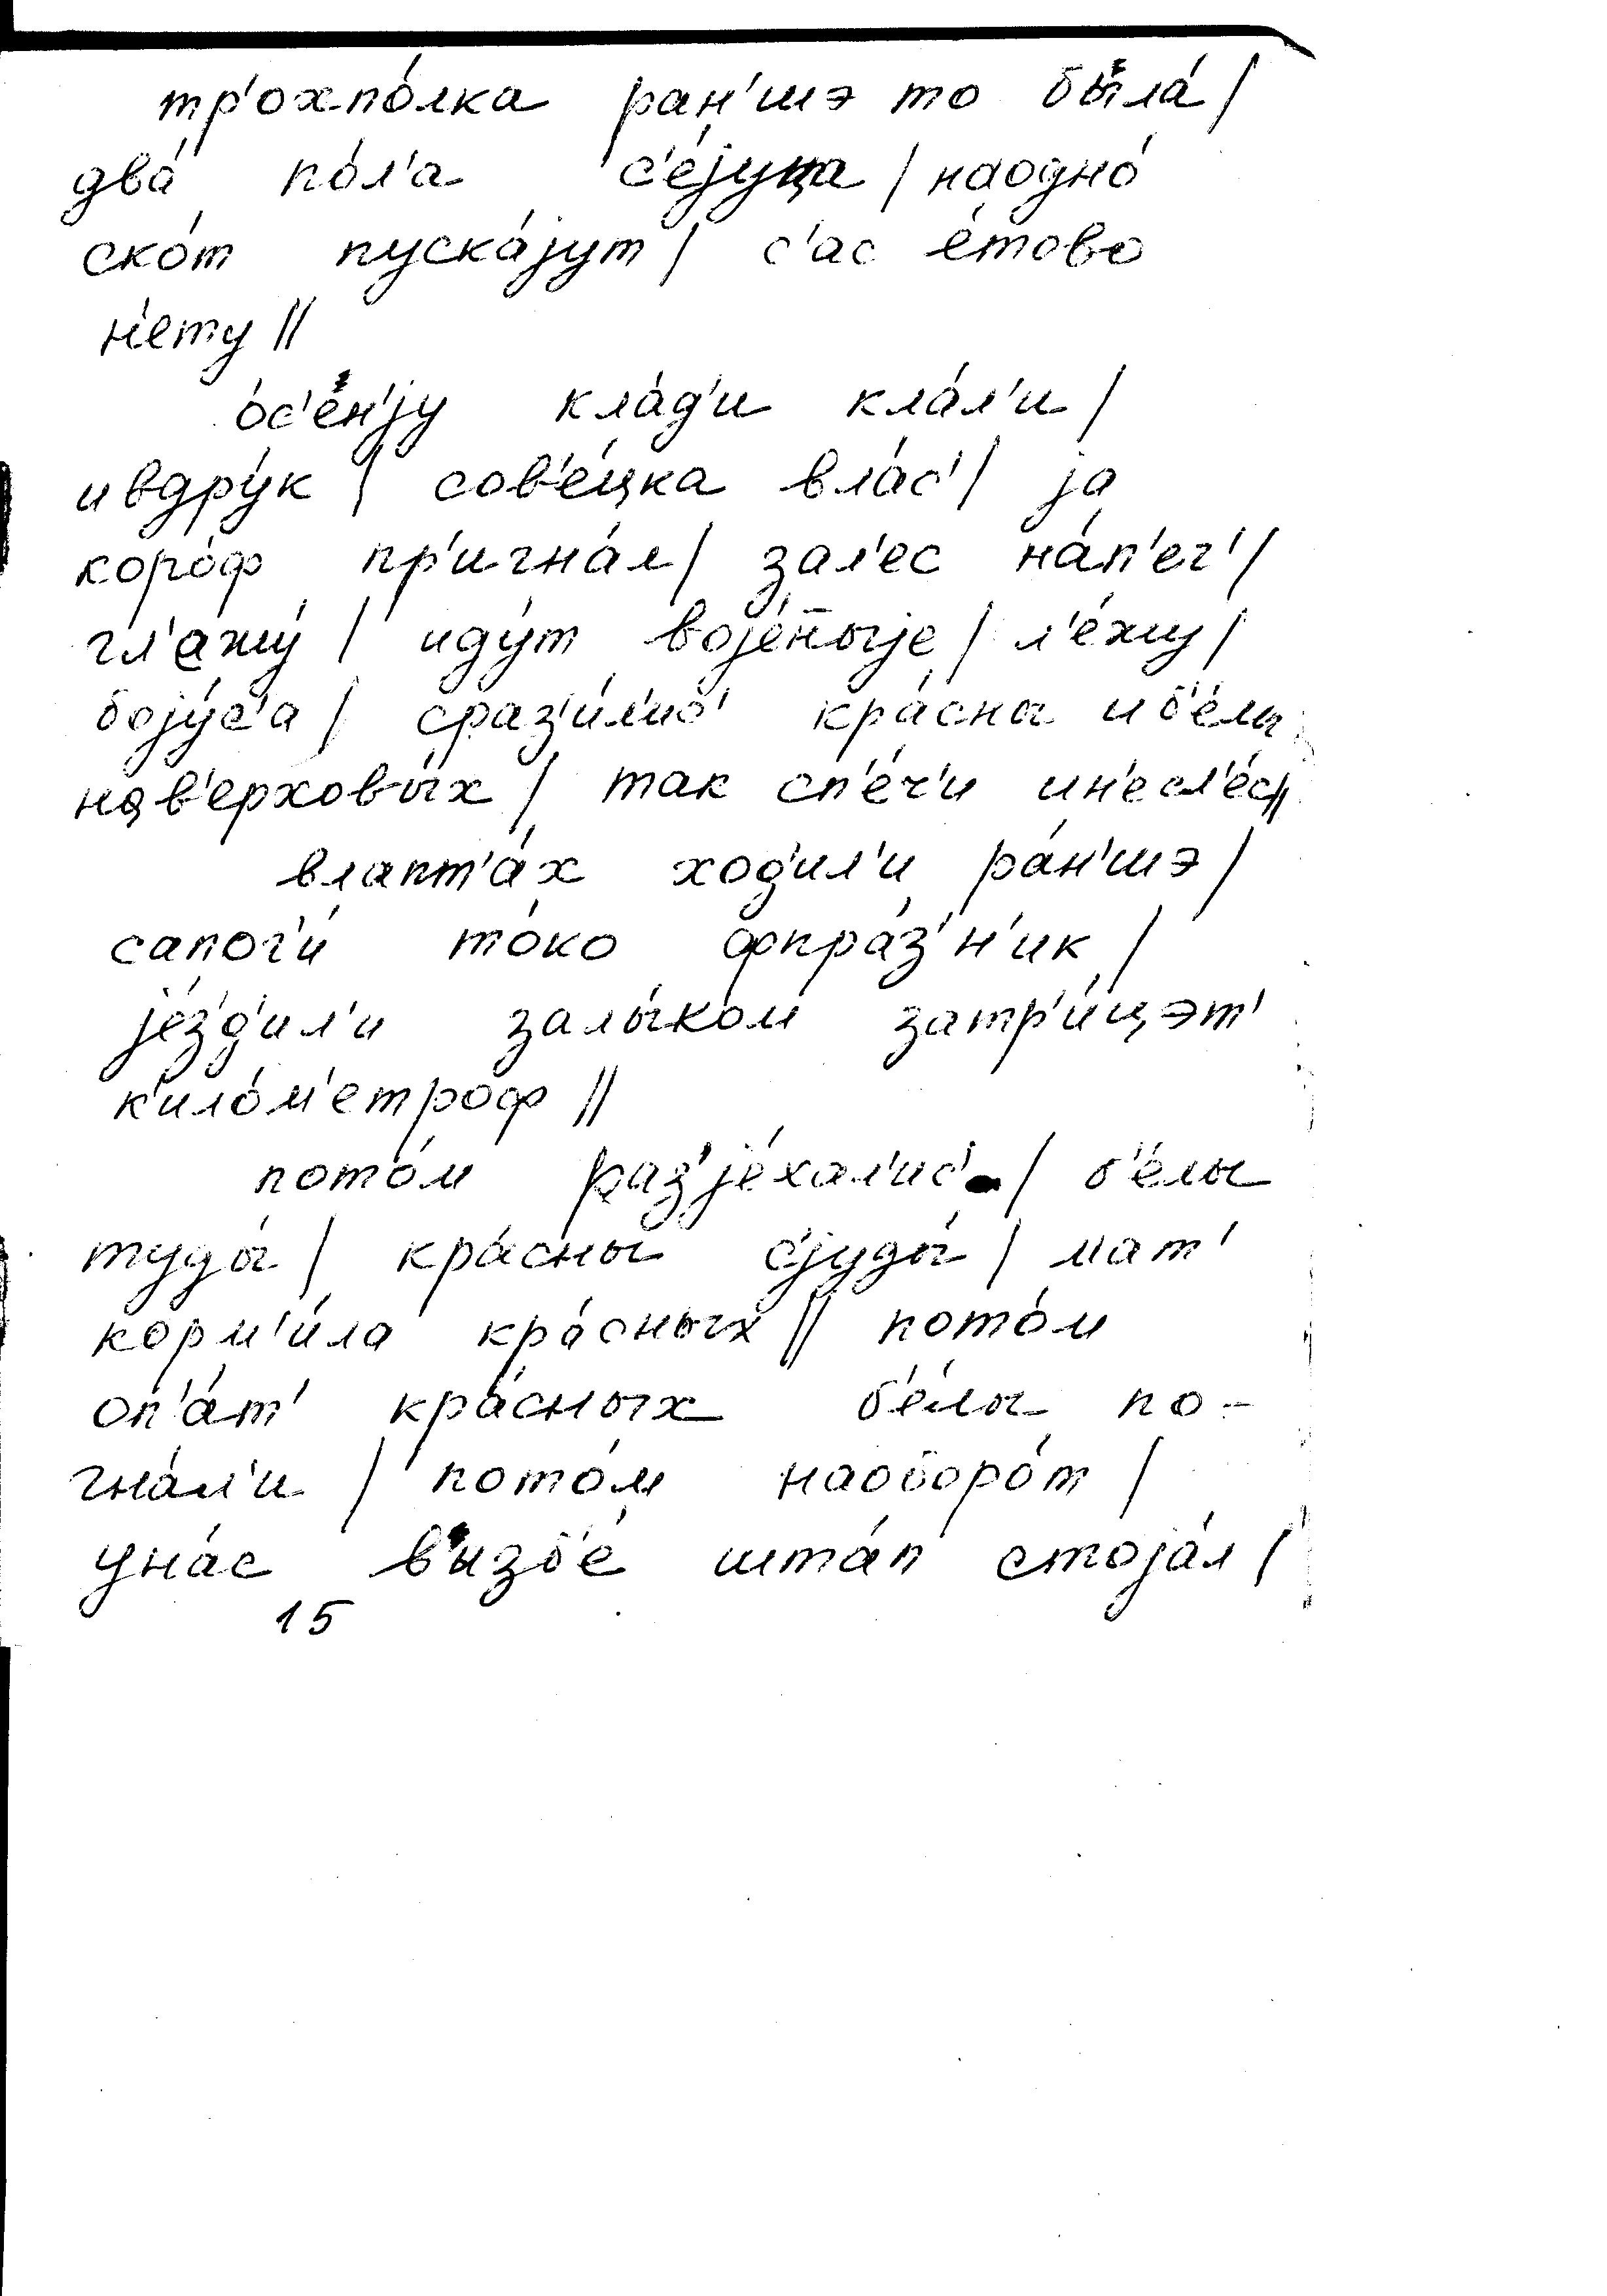 тр'охпо́лка ран'шэ то была́ /
два́ по́л'а с'е́јуца / наодно́
ско́т пуска́јут / с'ас е́тово
н'е́ту //
о́с'ен'ју кла́д'и кла́л'и /
и вдру́к / сов'е́цка вла́с' / ја
коро́ф пр'игна́л / зал'ес на́п'еч' /
гл'ажу́ / иду́т воје́н̄ыје / л'е́жу /
боју́с'а / сраз'и́л'ис' кра́сны и б'е́лы
нав'ерховы́х / так сп'е́ч'и ин'есл'е́с //
влапт'а́х ход'ил'и ра́н'шэ /
сапог'и́ то́ко фпра́з'н'ик /
је́з'д'ил'и залы́ком затр'и́цэт'
к'ило́м'етроф //
пото́м раз'је́хал'ис' / б'е́лы
туды́ / кра́сны с'јуды́ / мат'
корм'и́ла кра́сных // пото́м
оп'а́т' кра́сных б'е́лы по-
гна́л'и / пото́м наоборо́т /
уна́с выз'б'е́ шта́п стоја́л /
15